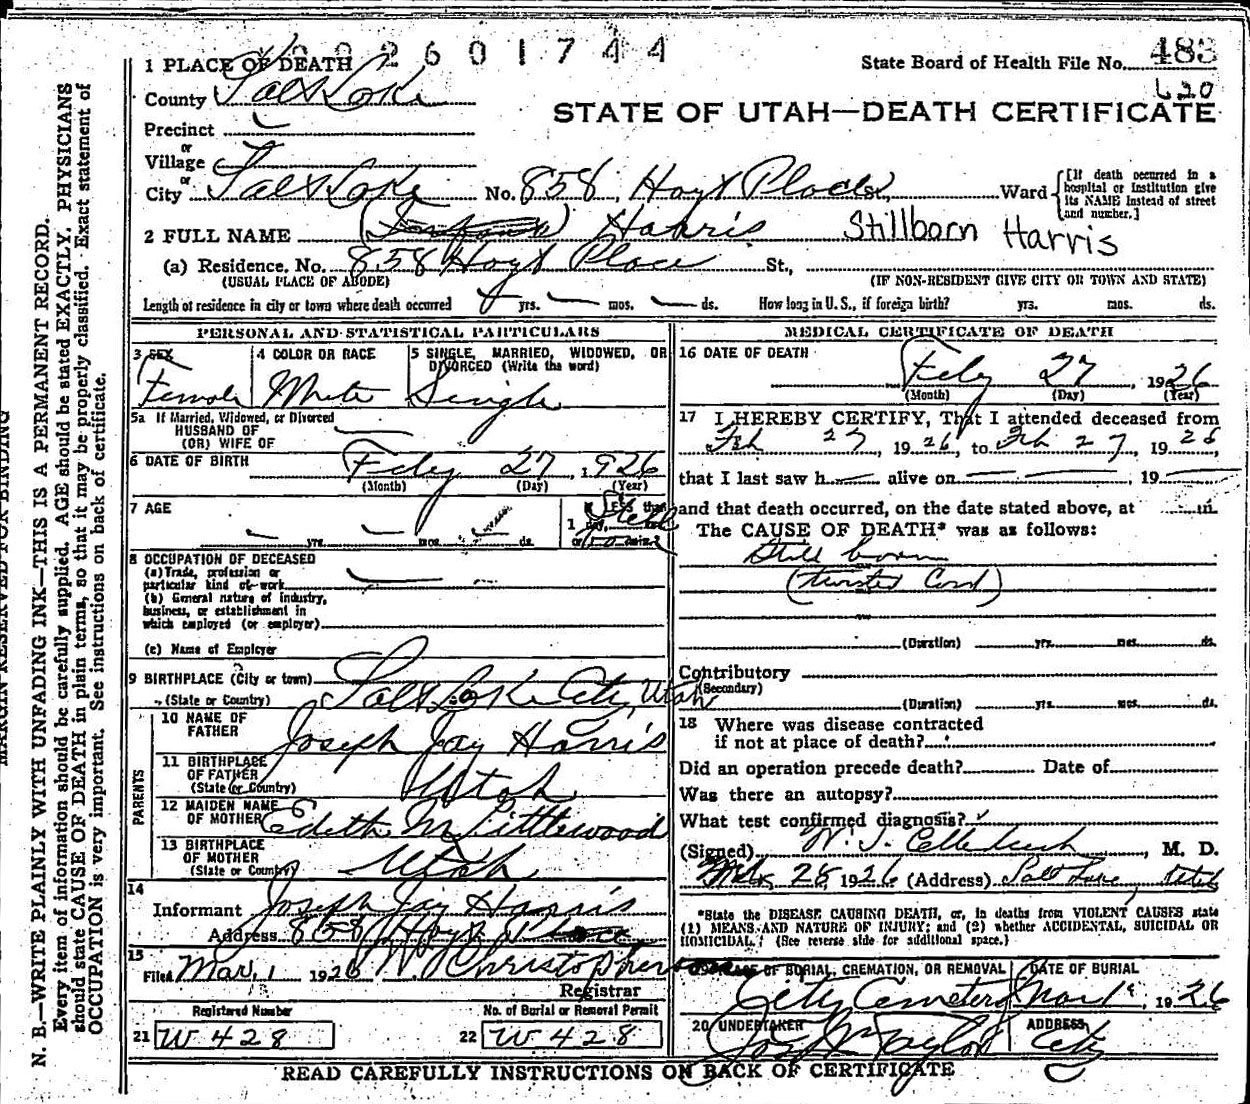 002601744
State Board of Health File No. 483
620
STATE OF UTAH—DEATH CERTIFICATE
MARGIN RESERVED FOR BINDING
N. B.—WRITE PLAINLY WITH UNFADING INK—THIS IS A PERMANENT RECORD.
Every item of information should be carefully supplied. AGE should be stated EXACTLY. PHYSICIANS
should state CAUSE OF DEATH in plain terms, so that it may be properly classified. Exact statement of
OCCUPATION is very important. See instructions on back of certificate.
1 PLACE OF DEATH
County Salt Lake
Precinct
or
Village
or
City Salt Lake No. 858, Hoyt Place St., Ward
[If death occurred in a
hospital or institution give
its NAME instead of street
and number.]
2 FULL NAME Harris Stillborn Harris
(a) Residence. No. 858 Hoyt Place St.,
(USUAL PLACE OF ABODE) (IF NON-RESIDENT GIVE CITY OR TOWN AND STATE)
Length of residence in city or town where death occurred yrs. mos. ds. How long in U.S., if foreign birth? yrs. mos. ds.
PERSONAL AND STATISTICAL PARTICULARS
3 SEX
Female
4 COLOR OR RACE
White
5 SINGLE, MARRIED, WIDOWED, OR
DIVORCED (Write the word)
Single
5a If Married, Widowed, or Divorced
HUSBAND OF
(OR) WIFE OF
6 DATE OF BIRTH Feby 27, 1926
(Month) (Day) (Year)
7 AGE
yrs. mos. ds.
8 OCCUPATION OF DECEASED
(a) Trade, profession or
particular kind of work
(b) General nature of industry,
business, or establishment in
which employed (or employer)
(c) Name of Employer
9 BIRTHPLACE (City or town) Salt Lake City, Utah
(State or Country)
PARENTS
10 NAME OF
FATHER Joseph Jay Harris
11 BIRTHPLACE
OF FATHER Utah
(State or Country)
12 MAIDEN NAME
OF MOTHER Edith M Littlewood
13 BIRTHPLACE
OF MOTHER Utah
(State or Country)
14
Informant Joseph Jay Harris
Address 858 Hoyt Place
15
Filed Mar. 1 1926 Christopherson
Registrar
Registered Number
21 W 428
No. of Burial or Removal Permit
22 W 428
MEDICAL CERTIFICATE OF DEATH
16 DATE OF DEATH
Feby 27, 1926
(Month) (Day) (Year)
17 I HEREBY CERTIFY, That I attended deceased from
Feb 27, 1926, to Feb 27, 1926,
that I last saw h alive on , 19
and that death occurred, on the date stated above, at m.
The CAUSE OF DEATH* was as follows:
Still born
(twisted Cord)
(Duration) yrs. mos. ds.
Contributory
(Secondary)
(Duration) yrs. mos. ds.
18 Where was disease contracted
if not at place of death?
Did an operation precede death? Date of
Was there an autopsy?
What test confirmed diagnosis?
(Signed) , M. D.
28, 1926 (Address) Salt Lake, Utah
*State the DISEASE CAUSING DEATH, or, in deaths from VIOLENT CAUSES state
(1) MEANS AND NATURE OF INJURY; and (2) whether ACCIDENTAL, SUICIDAL OR
HOMICIDAL. (See reverse side for additional space.)
OF BURIAL, CREMATION, OR REMOVAL
City Cemetery
DATE OF BURIAL
Mar 1, 1926
20 UNDERTAKER
Jos Wm Taylor
ADDRESS
City
READ CAREFULLY INSTRUCTIONS ON BACK OF CERTIFICATE